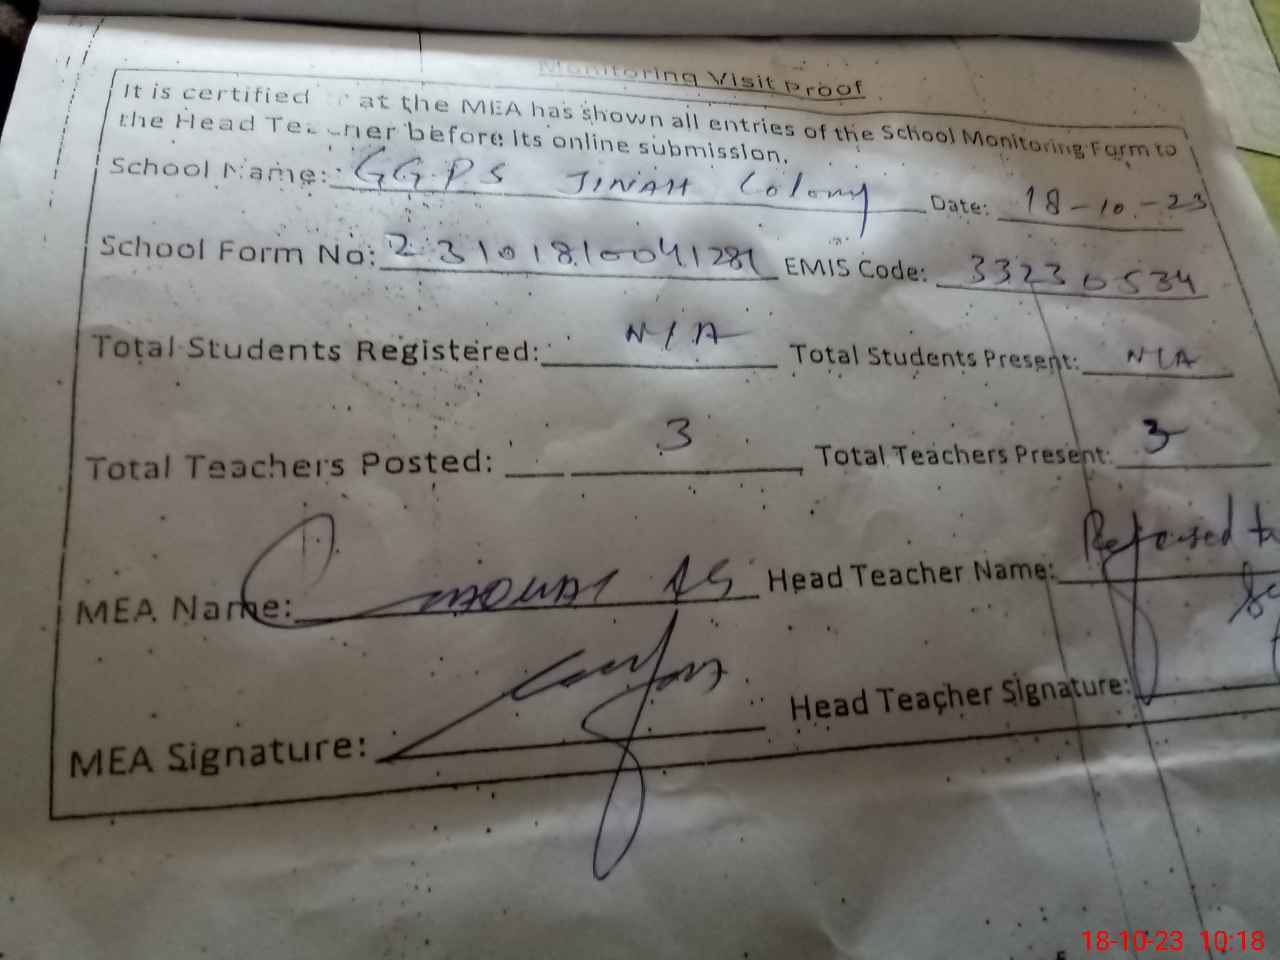 Monitoring Visit Proof
It is certified at the MEA has shown all entries of the School Monitoring Form to
the Head Teacher before its online submission.
School Name: GGPS JINAH Colony Date: 18-10-23
School Form No: EMIS Code: 33230534
Total Students Registered: N/A Total Students Present: N/A
Total Teachers Posted: 3 Total Teachers Present: 3
MEA Name: Head Teacher Name: Refused to
MEA Signature: Head Teacher Signature:
18-10-23 10:18